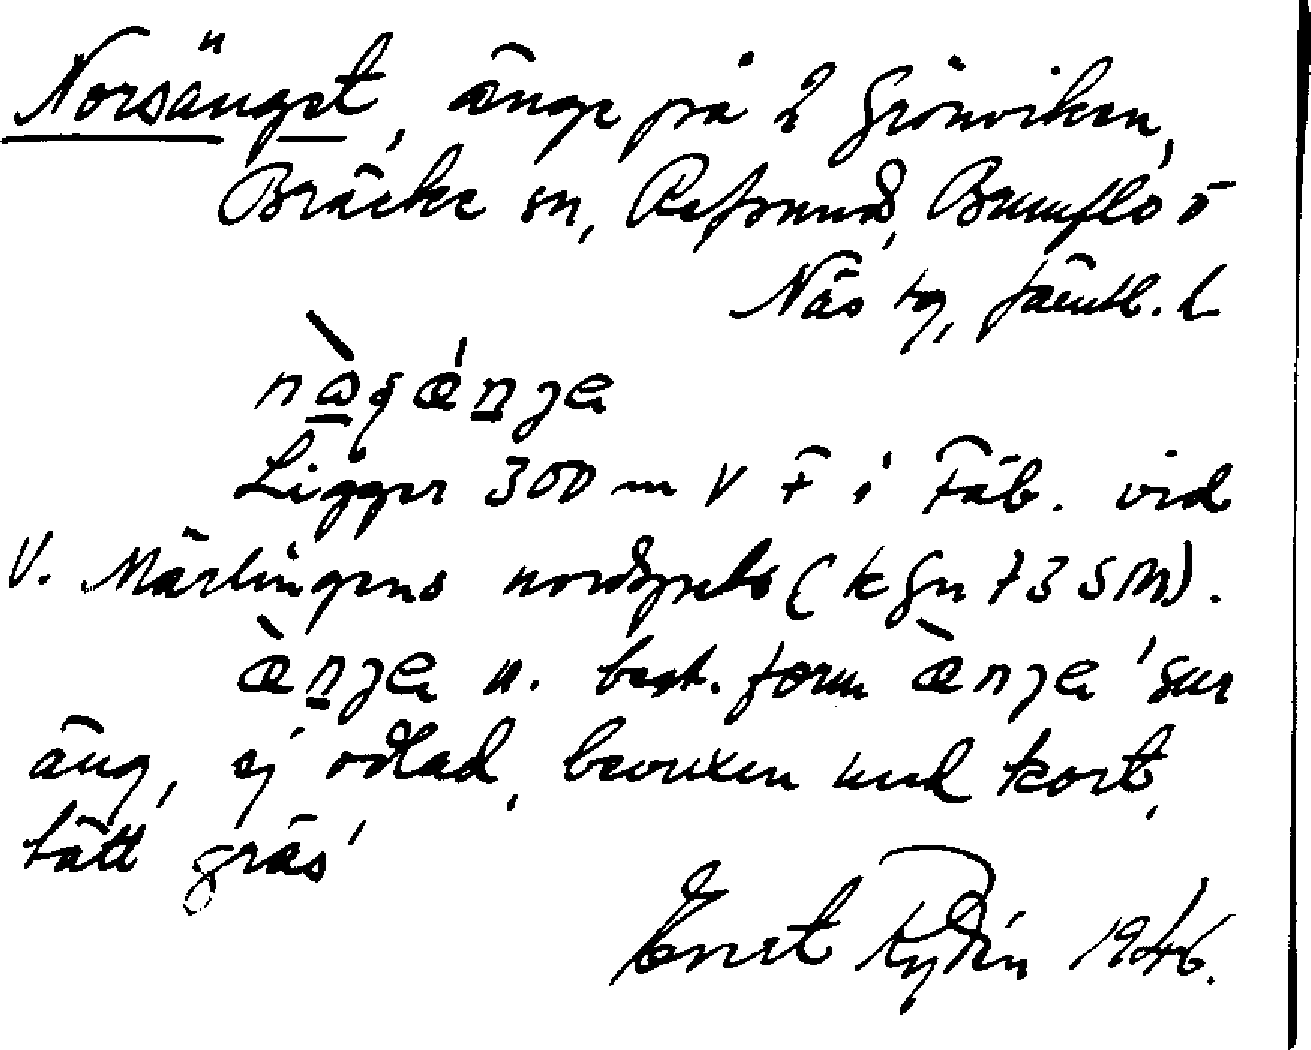 Norsänget, änge på 2 Grönviken,
Bräcke sn, Refsund, Brunflo o
Näs tg, Jämtl. l
Ligger 300 m V F i Fäb. vid
V. Märlingens nordspets (k gn 73 SM).
ænjea n. best. form ænjea 'sur
äng, ej odlad, bevuxen med kort,
tätt gräs'
Ernst Rydin 1946.